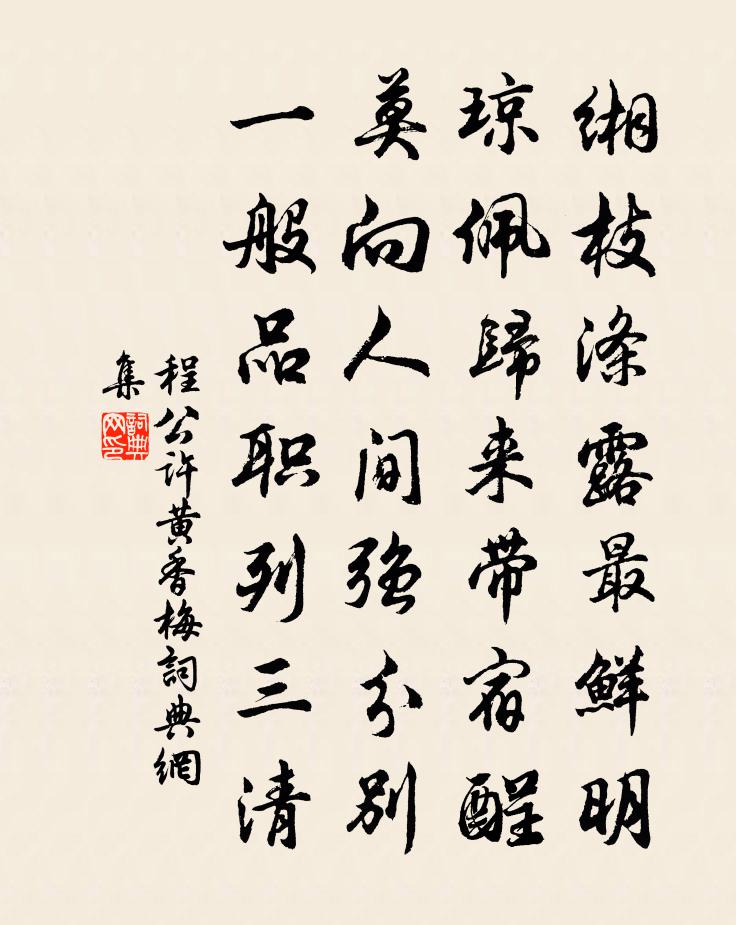 缃枝涤露最鲜明
琼佩歸来带宿酲
莫向人间強分别
一般品职列三清
程公许黄香梅詞典網
集
詞典网印